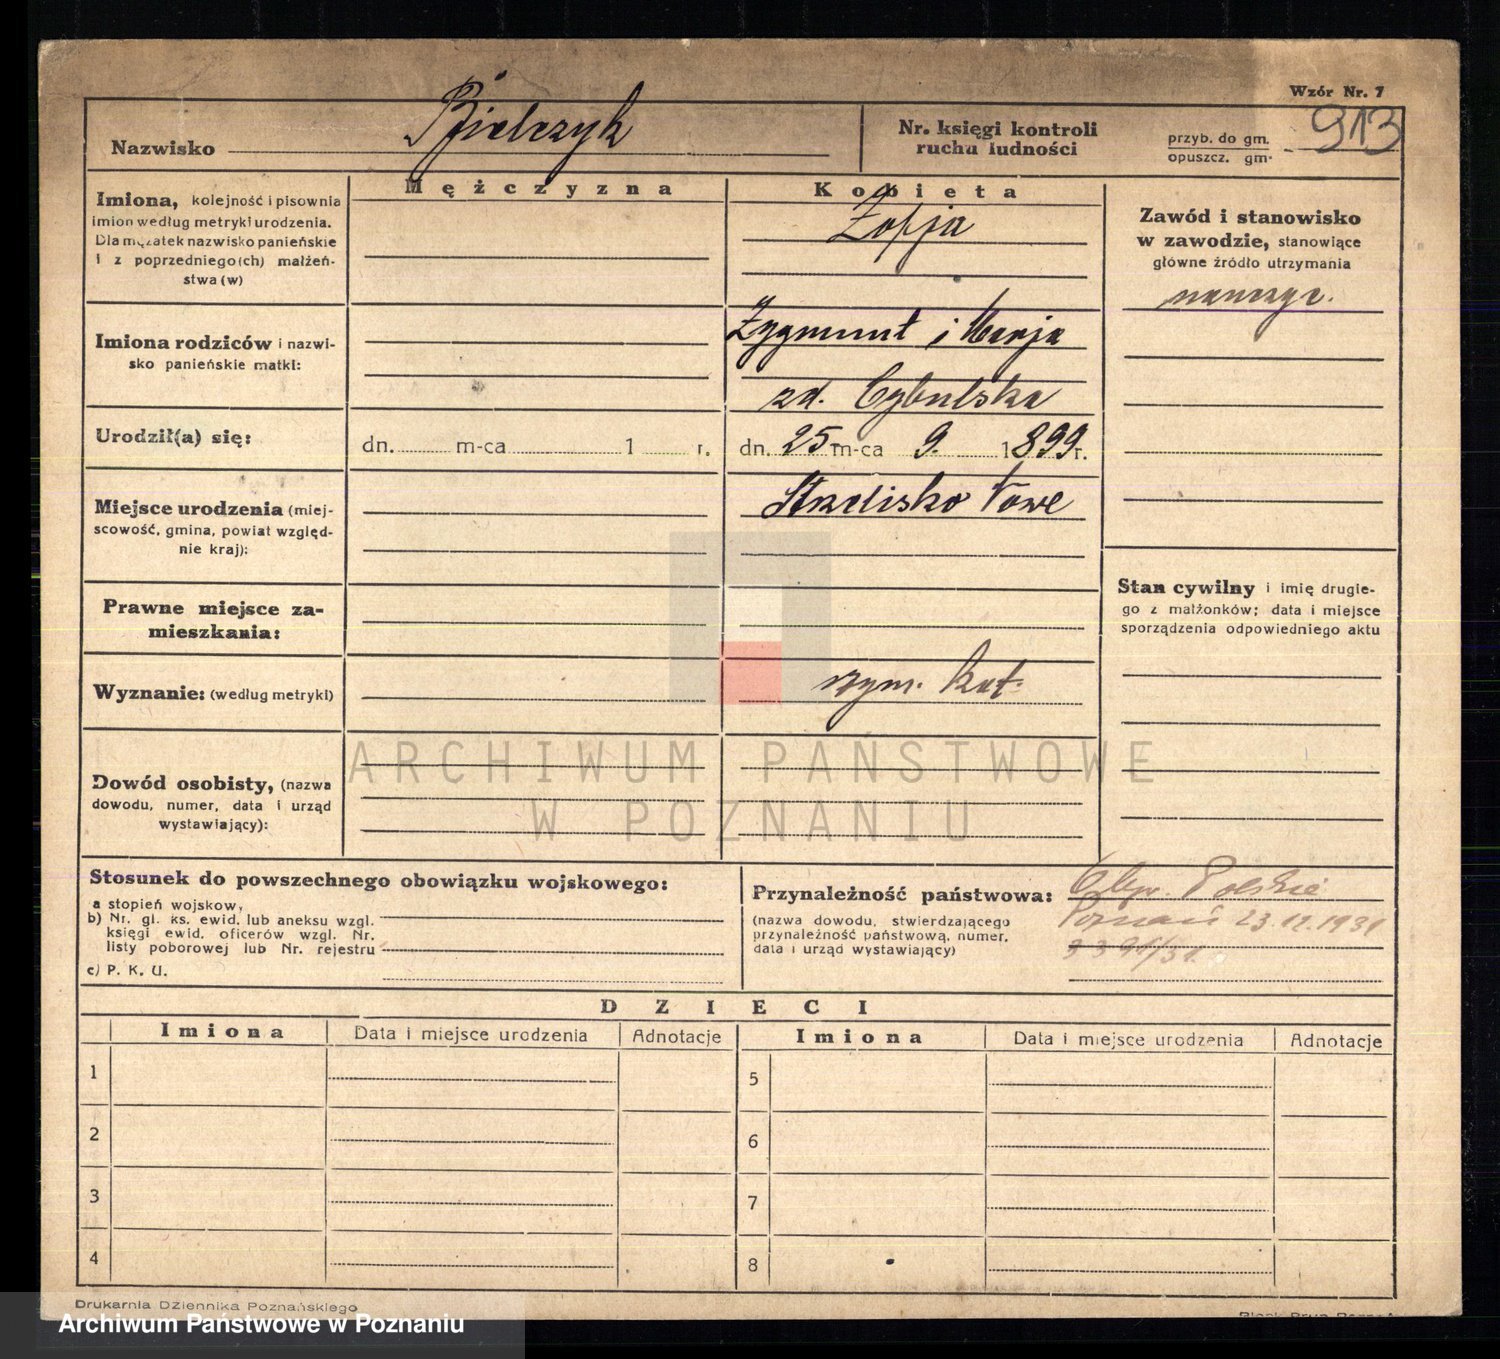 Wzór Nr. 7
Nazwisko Bielczyk
Nr. księgi kontroli ruchu ludności
przyb. do gm.
opuszcz. gm.
913
Mężczyzna
Kobieta
Imiona, kolejność i pisownia
imion według metryki urodzenia.
Dla mężatek nazwisko panieńskie
i z poprzedniego(ch) małżeń-
stwa (w)
Zofja
Zawód i stanowisko
w zawodzie, stanowiące
główne źródło utrzymania
nauczyc.
Imiona rodziców i nazwi-
sko panieńskie matki:
Zygmunt i Marja
zd. Cybulska
Urodził(a) się:
dn. m-ca 1 r.
dn. 25 m-ca 9. 1899 r.
Miejsce urodzenia (miej-
scowość, gmina, powiat względ-
nie kraj):
Strzelisko Nowe
Prawne miejsce za-
mieszkania:
Stan cywilny i imię drugie-
go z małżonków; data i miejsce
sporządzenia odpowiedniego aktu
Wyznanie: (według metryki)
rzym. kat.
Dowód osobisty, (nazwa
dowodu, numer, data i urząd
wystawiający):
ARCHIWUM PAŃSTWOWE
W POZNANIU
Stosunek do powszechnego obowiązku wojskowego:
a stopień wojskow,
b) Nr. gl. ks. ewid. lub aneksu wzgl.
księgi ewid. oficerów wzgl. Nr.
listy poborowej lub Nr. rejestru
c) P. K. U.
Przynależność państwowa:
(nazwa dowodu, stwierdzającego
przynależność państwową, numer,
data i urząd wystawiający)
Polskie
Poznań 23.12.1931
DZIECI
Imiona Data i miejsce urodzenia Adnotacje Imiona Data i miejsce urodzenia Adnotacje
1 5
2 6
3 7
4 8
Drukarnia Dziennika Poznańskiego
Archiwum Państwowe w Poznaniu